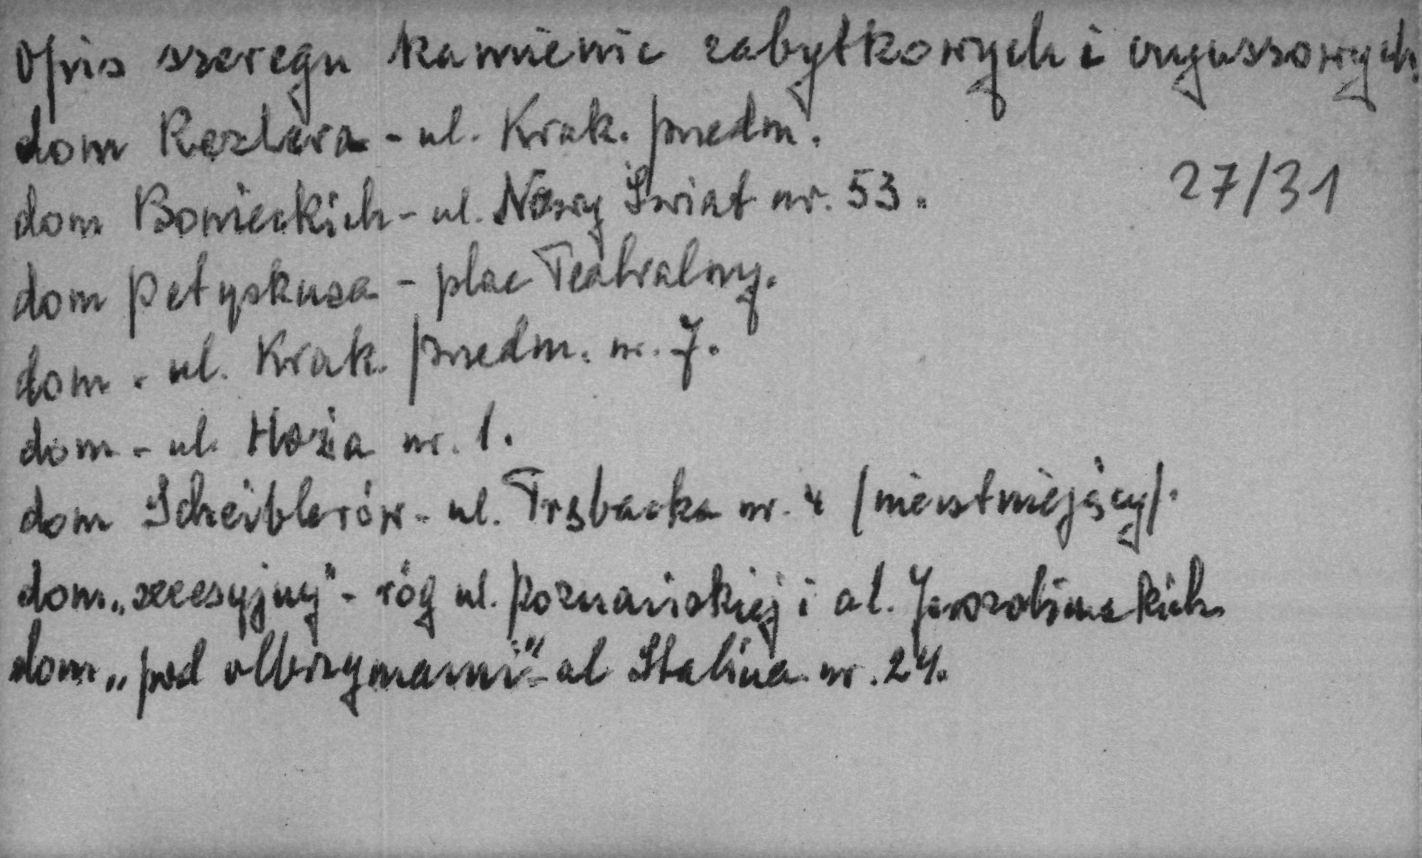 Opis szeregu kamienic zabytkowych i czynszowych.
dom Rezlera - ul. Krak. przedm.
dom Bonieckich - ul. Nowy Świat nr. 53.
27/31
dom Petyskusa - plac Teatralny.
dom - ul. Krak. przedm. nr. 7.
dom - ul. Hoża nr. 1.
dom Scheiblerów - ul. Trębacka nr. 4 /nieistniejący/.
dom „secesyjny" - róg ul. Poznańskiej i al. Jerozolimskich
dom „pod olbrzymami" - al Stalina nr. 24.